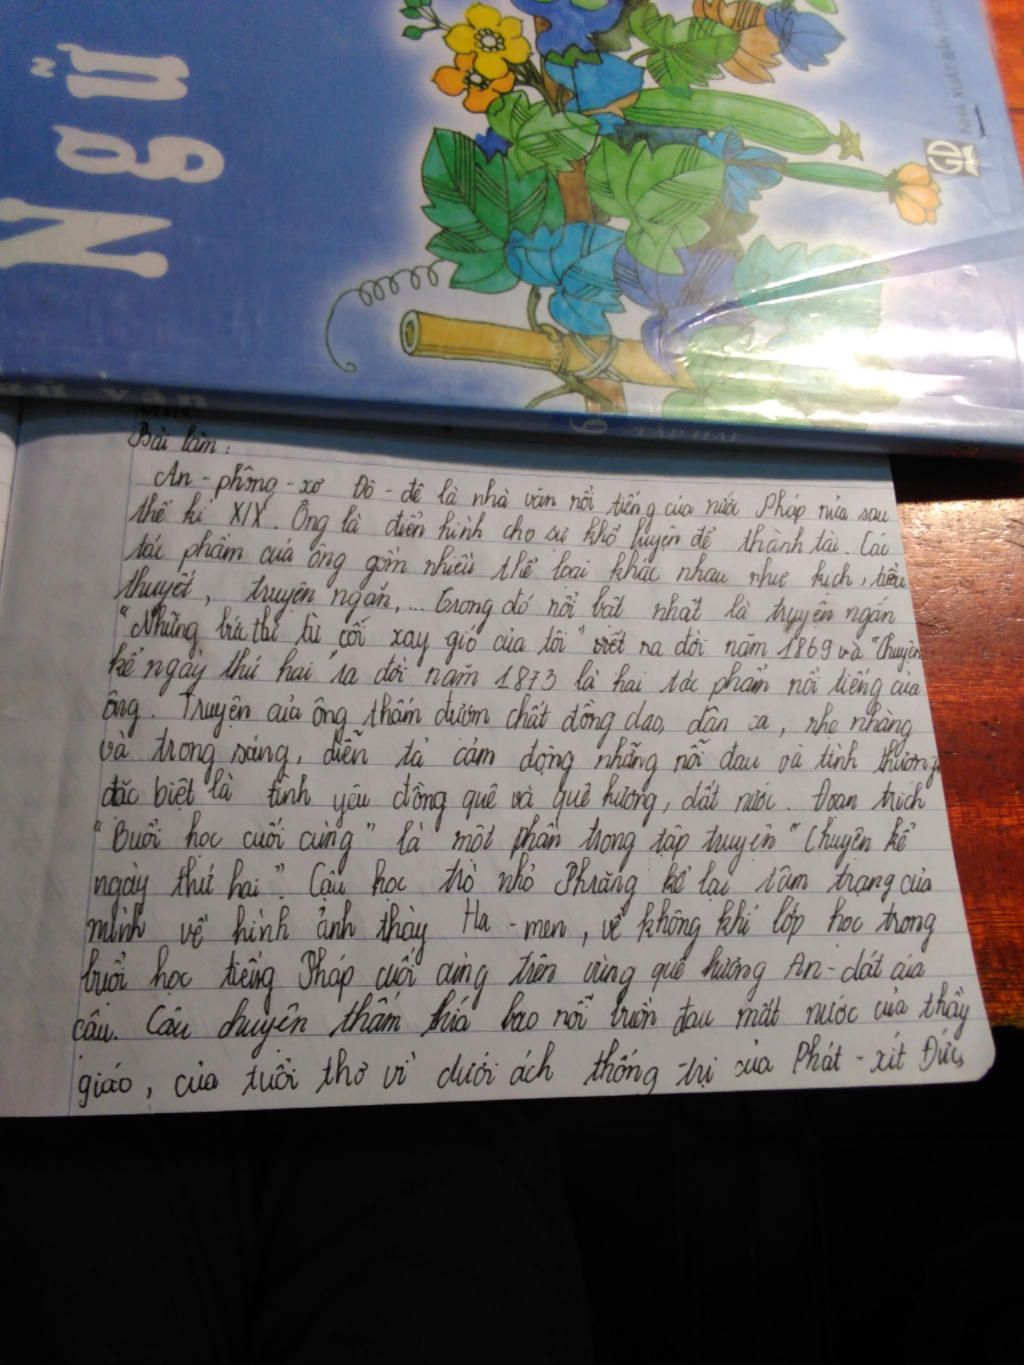 Ngữ
NHÀ XUẤT BẢN
GD
ngữ văn
6 TẬP HAI
Bài làm:
An-phông-xơ Đô-đê là nhà văn nổi tiếng của nước Pháp nửa sau
thế kỉ XIX. Ông là điển hình cho sự khổ luyện để thành tài. Các
tác phẩm của ông gồm nhiều thể loại khác nhau như kịch, tiểu
thuyết, truyện ngắn,... trong đó nổi bật nhất là truyện ngắn
"Những bức thư từ cối xay gió của tôi" viết ra đời năm 1869 và "Chuyện
kể ngày thứ hai" ra đời năm 1873 là hai tác phẩm nổi tiếng của
ông. Truyện của ông thấm đượm chất đồng dao, dân ca, nhẹ nhàng
và trong sáng, diễn tả cảm động những nỗi đau và tình thương,
đặc biệt là tình yêu đồng quê và quê hương, đất nước. Đoạn trích
"Buổi học cuối cùng" là một phần trong tập truyện "Chuyện kể
ngày thứ hai". Cậu học trò nhỏ Phrăng kể lại tâm trạng của
mình về hình ảnh thầy Ha-men, về không khí lớp học trong
buổi học tiếng Pháp cuối cùng trên vùng quê hương An-dát của
cậu. Câu chuyện thấm thía bao nỗi buồn đau mất nước của thầy
giáo, của tuổi thơ vì dưới ách thống trị của Phát-xít Đức,